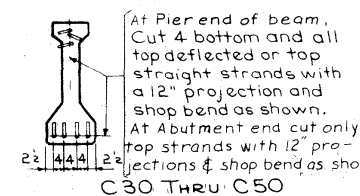 At Pier end of beam,
Cut 4 bottom and all
top deflected or top
straight strands with
a 12" projection and
shop bend as shown.
At Abutment end cut only
top strands with 12" pro-
jections & shop bend as sho
2½ 4 4 4 2½
C30 THRU C50